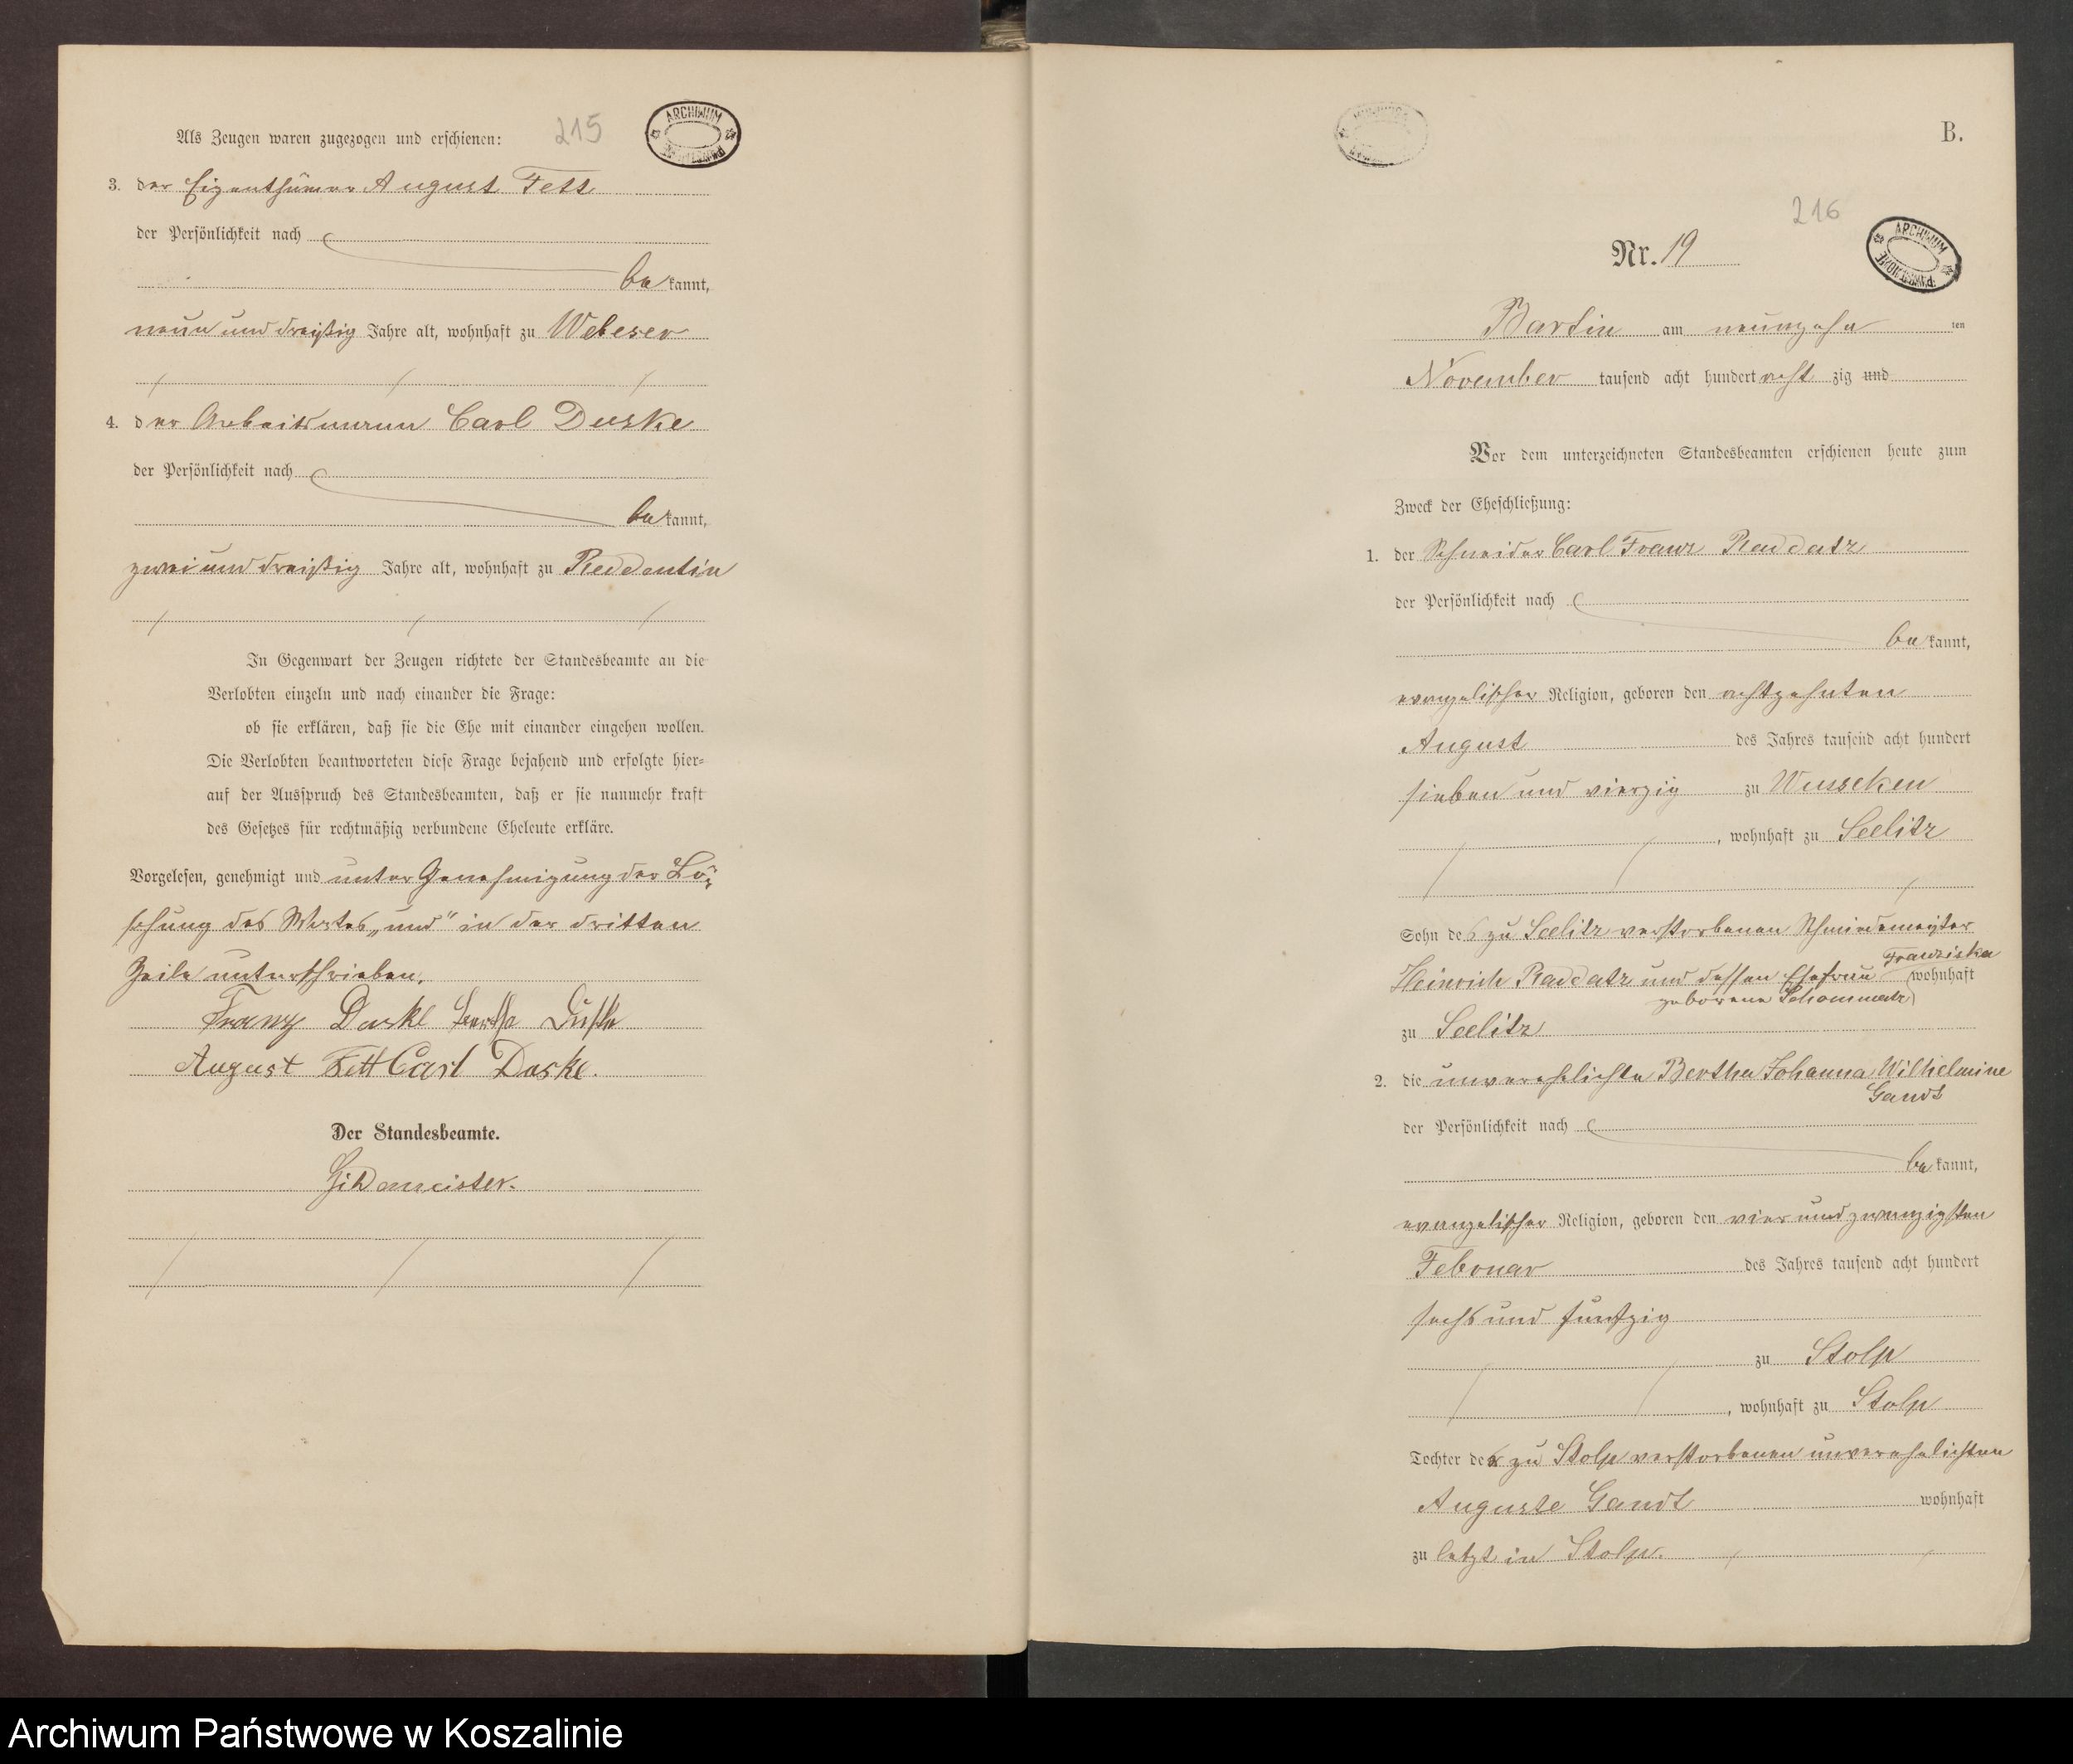 215
ARCHIWUM PAŃSTWOWE
Als Zeugen waren zugezogen und erschienen:
3. der Eigenthümer August Fett
der Persönlichkeit nach
be kannt,
neun und dreißig Jahre alt, wohnhaft zu Weteser
4. der Arbeitsmann Carl Duske
der Persönlichkeit nach
be kannt,
zwei und dreißig Jahre alt, wohnhaft zu Reddentin
In Gegenwart der Zeugen richtete der Standesbeamte an die
Verlobten einzeln und nach einander die Frage:
ob sie erklären, daß sie die Ehe mit einander eingehen wollen.
Die Verlobten beantworteten diese Frage bejahend und erfolgte hier-
auf der Ausspruch des Standesbeamten, daß er sie nunmehr kraft
des Gesetzes für rechtmäßig verbundene Eheleute erkläre.
Vorgelesen, genehmigt und unter Genehmigung der Lö-
schung des Wortes „und“ in der dritten
Zeile unterschrieben.
Franz Duske Bertha Duske
August Fett Carl Duske.
Der Standesbeamte.
B.
216
ARCHIWUM PAŃSTWOWE
Nr. 19
Bartin am neunzehn ten
November tausend acht hundert acht zig und
Vor dem unterzeichneten Standesbeamten erschienen heute zum
Zweck der Eheschließung:
1. der Schneider Carl Franz Raddatz
der Persönlichkeit nach
be kannt,
evangelischer Religion, geboren den achtzehnten
August des Jahres tausend acht hundert
sieben und vierzig zu Wusseken
, wohnhaft zu Seelitz
Sohn des zu Seelitz verstorbenen Schmiedemeister
Heinrich Raddatz und dessen Ehefrau Franziska wohnhaft
geborene Schommatz
zu Seelitz
2. die unverehelichte Bertha Johanna Wilhelmine
Gandt
der Persönlichkeit nach
be kannt,
evangelischer Religion, geboren den vier und zwanzigsten
Februar des Jahres tausend acht hundert
sechs und fünfzig
zu Stolp
, wohnhaft zu Stolp
Tochter der zu Stolp verstorbenen unverehelichten
Auguste Gandt wohnhaft
zu letzt in Stolp.
Archiwum Państwowe w Koszalinie